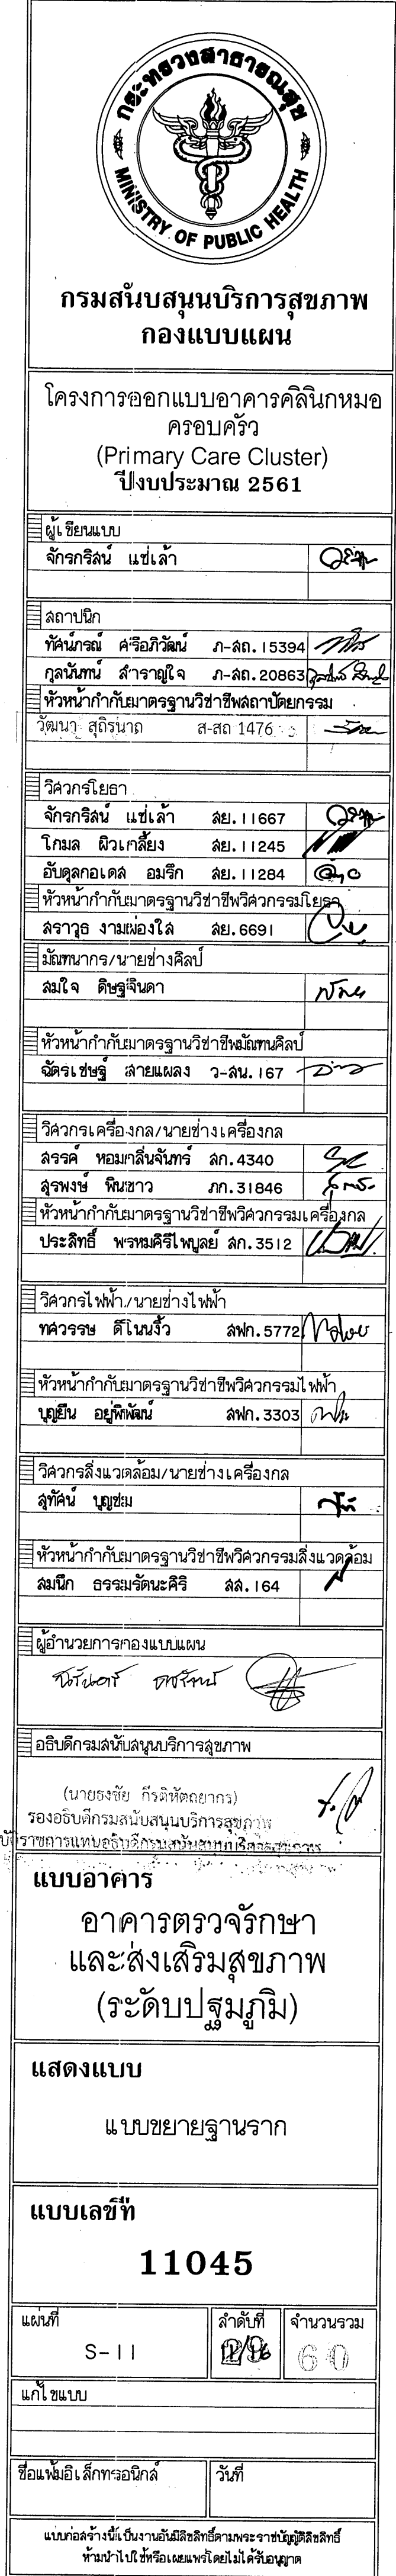 กระทรวงสาธารณสุข
MINISTRY OF PUBLIC HEALTH
กรมสนับสนุนบริการสุขภาพ
กองแบบแผน
โครงการออกแบบอาคารคลินิกหมอ
ครอบครัว
(Primary Care Cluster)
ปีงบประมาณ 2561
ผู้เขียนแบบ
จักรกริสน์ แซ่เล้า
สถาปนิก
ทัศน์ภรณ์ ศรีอภิวัฒน์ ภ-สถ.15394
กุลนันทน์ สำราญใจ ภ-สถ.20863
หัวหน้ากำกับมาตรฐานวิชาชีพสถาปัตยกรรม
วัฒนา สุถิรนาถ ส-สถ 1476
วิศวกรโยธา
จักรกริสน์ แซ่เล้า สย.11667
โกมล ผิวเกลี้ยง สย.11245
อับดุลกอเดส อมรึก สย.11284
หัวหน้ากำกับมาตรฐานวิชาชีพวิศวกรรมโยธา
สราวุธ งามผ่องใส สย.6691
มัณฑนากร/นายช่างศิลป์
สมใจ ดิษฐจินดา
หัวหน้ากำกับมาตรฐานวิชาชีพมัณฑนศิลป์
ฉัตรเชษฐ์ สายแผลง ว-สน.167
วิศวกรเครื่องกล/นายช่างเครื่องกล
สรรค์ หอมกลิ่นจันทร์ สก.4340
สุรพงษ์ พินขาว ภก.31846
หัวหน้ากำกับมาตรฐานวิชาชีพวิศวกรรมเครื่องกล
ประสิทธิ์ พรหมคิรีไพบูลย์ สก.3512
วิศวกรไฟฟ้า/นายช่างไฟฟ้า
ทศวรรษ ดีโนนงิ้ว สฟก.5772
หัวหน้ากำกับมาตรฐานวิชาชีพวิศวกรรมไฟฟ้า
บุญยืน อยู่พิพัฒน์ สฟก.3303
วิศวกรสิ่งแวดล้อม/นายช่างเครื่องกล
สุทัศน์ บุญชม
หัวหน้ากำกับมาตรฐานวิชาชีพวิศวกรรมสิ่งแวดล้อม
สมนึก ธรรมรัตนะคิริ สส.164
ผู้อำนวยการกองแบบแผน
อธิบดีกรมสนับสนุนบริการสุขภาพ
(นายธงชัย กีรติหัตถยากร)
รองอธิบดีกรมสนับสนุนบริการสุขภาพ
ราชการแทนอธิบดีกรมสนับสนุนบริการสุขภาพ
แบบอาคาร
อาคารตรวจรักษา
และส่งเสริมสุขภาพ
(ระดับปฐมภูมิ)
แสดงแบบ
แบบขยายฐานราก
แบบเลขที่
11045
แผ่นที่ ลำดับที่ จำนวนรวม
S-11 60
แก้ไขแบบ
ชื่อแฟ้มอิเล็กทรอนิกส์ วันที่
แบบก่อสร้างนี้เป็นงานอันมีลิขสิทธิ์ตามพระราชบัญญัติลิขสิทธิ์
ห้ามนำไปใช้หรือเผยแพร่โดยไม่ได้รับอนุญาต